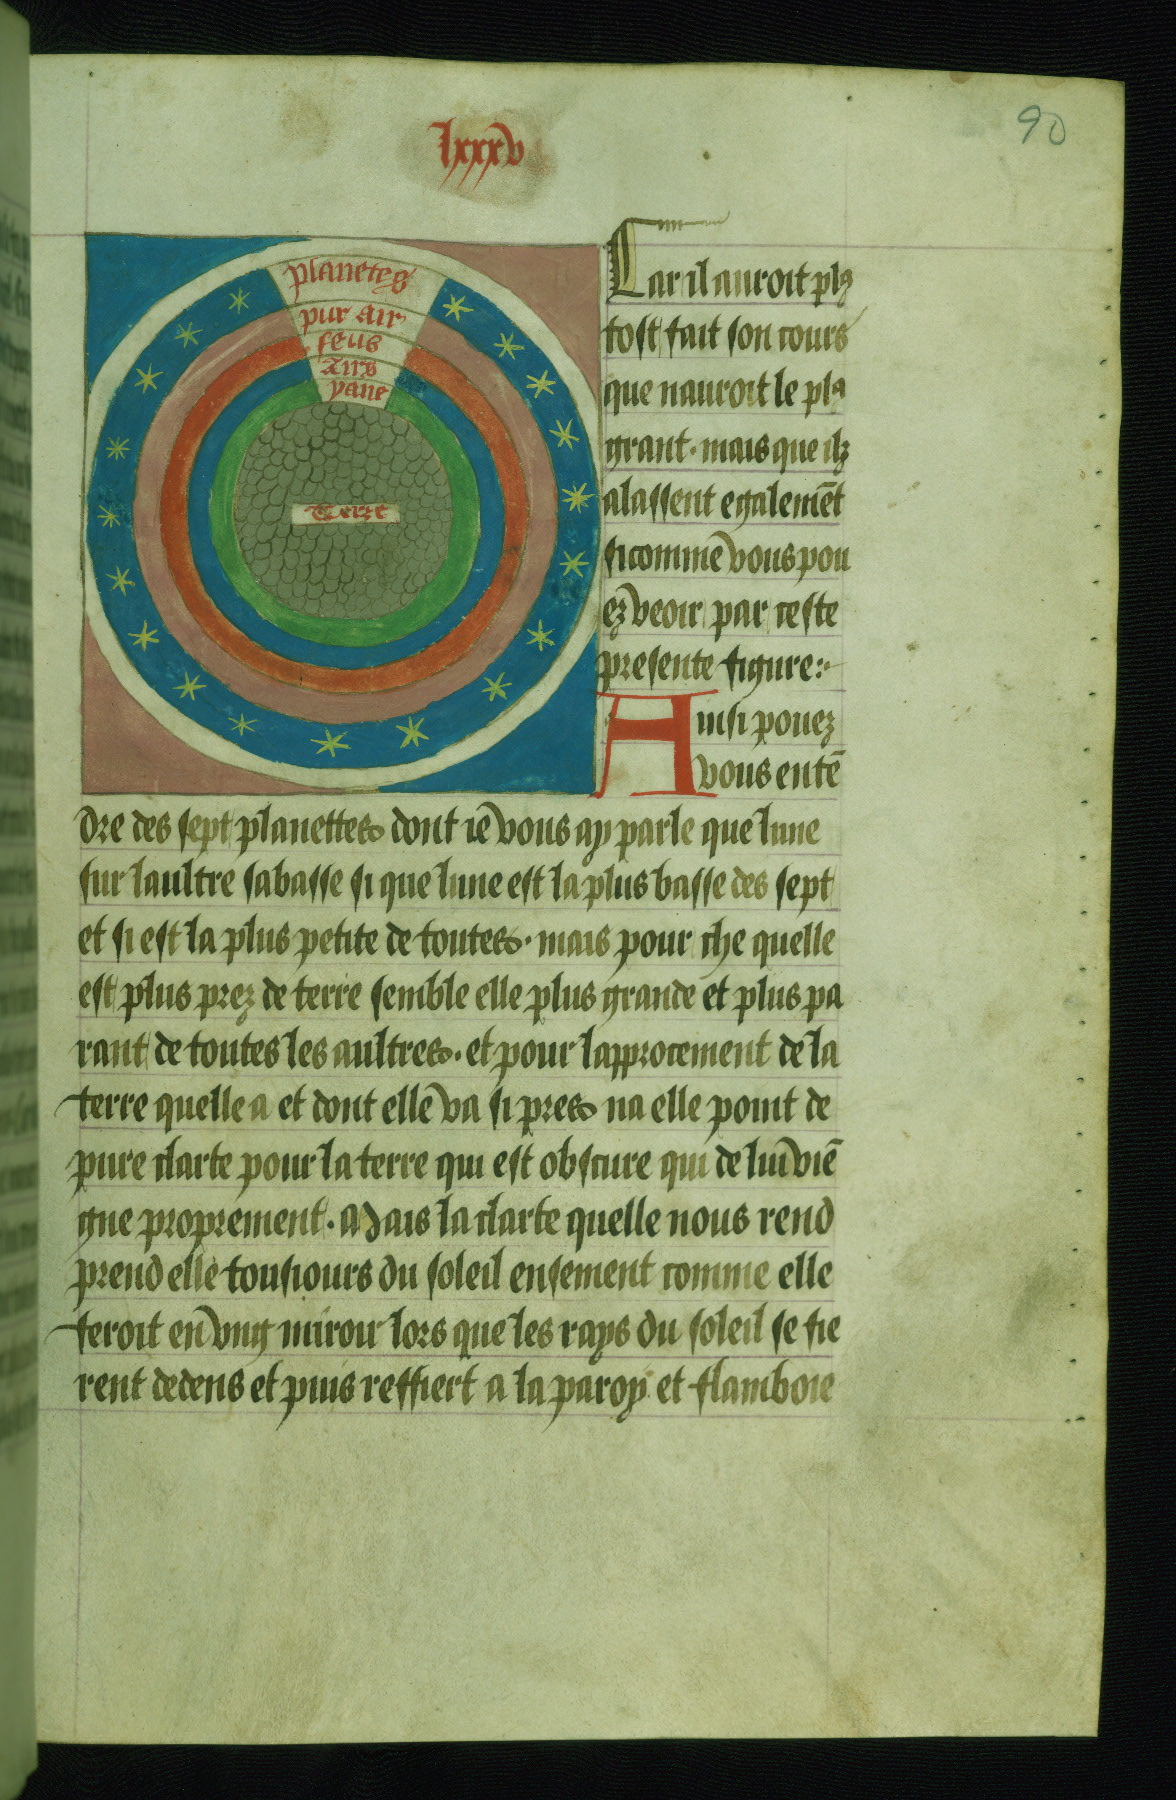 lxxxv
90
planetes
pur air
feus
airs
yaue
Terre
Car il auroit plꝰ
tost fait son cours
que nauroit le plꝰ
grant · mais que ilz
alassent egalemēt
si comme vous pou
ez veoir par ceste
presente figure :·
Ainsi pouez
vous entē
dre des sept planettes dont ie vous ay parle que lune
sur laultre sabasse si que lune est la plus basse des sept
et si est la plus petite de toutes · mais pour che quelle
est plus prez de terre semble elle plus grande et plus pa
rant de toutes les aultres · et pour lapprocement de la
terre quelle a et dont elle va si pres na elle point de
pure clarte pour la terre qui est obscure qui de lui viē
gne proprement · Mais la clarte quelle nous rend
prend elle tousiours du soleil ensement comme elle
feroit en vng miroir lors que les rays du soleil se fie
rent dedens et puis reffiert a la paroy et flamboie